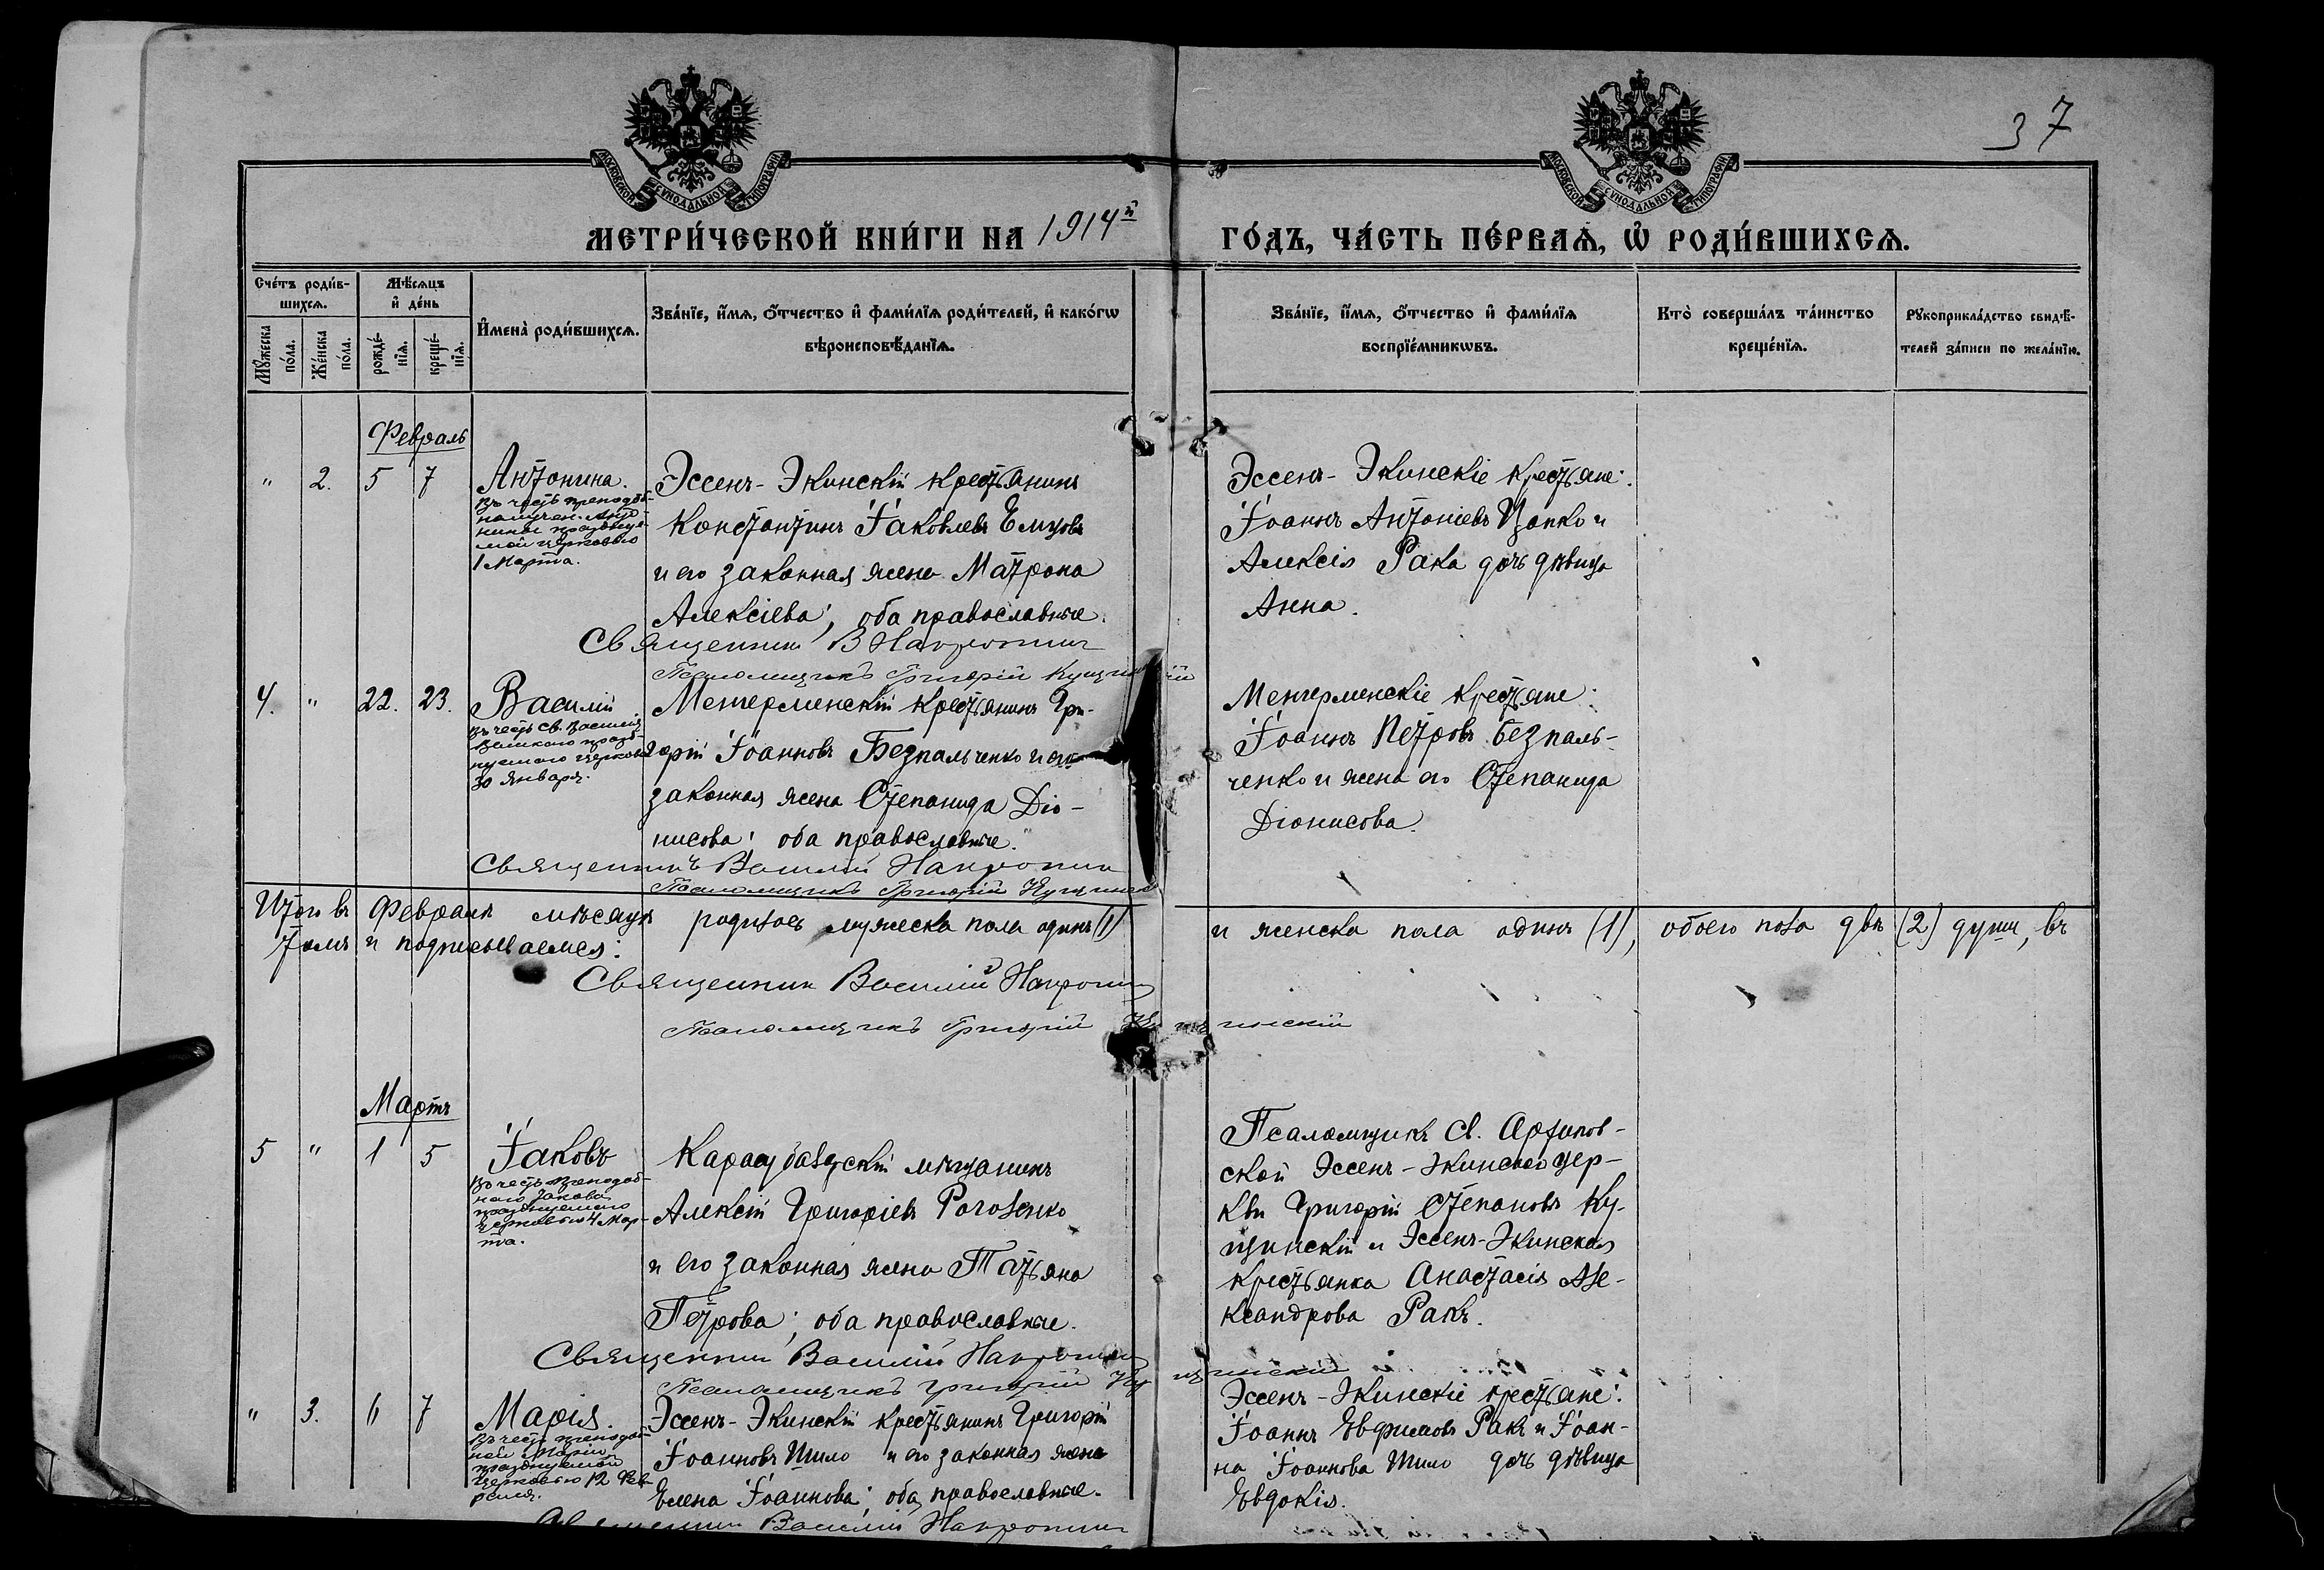 37
МОСКОВСКОЙ СѴНОДАЛЬНОЙ ТИПОГРАФІИ
МОСКОВСКОЙ СѴНОДАЛЬНОЙ ТИПОГРАФІИ
МЕТРИ́ЧЕСКОЙ КНИ́ГИ НА 1914й
ГО́ДЪ, ЧА́СТЬ ПЕ́РВАѦ, Ѡ҆ РОДИ́ВШИХСѦ.
Сче́тъ роди́в-
шихсѧ.
Мꙋ́жеска
по́ла.
Же́нска
по́ла.
Мѣ́сѧцъ
и҆ де́нь
рожде́-
нїѧ.
креще́-
нїѧ.
И҆мена̀ роди́вшихсѧ.
Зва́нїе, и҆́мѧ, ѻ҆́тчество и҆ фами́лїѧ роди́телей, и҆ како́гѡ
вѣроисповѣ́данїѧ.
Зва́нїе, и҆́мѧ, ѻ҆́тчество и҆ фами́лїѧ
воспрїе́мникѡвъ.
Кто̀ соверша́лъ та́инство
креще́нїѧ.
Рꙋкоприкла́дство свидѣ́-
телей за́писи по жела́нїю.
Февраль
" 2. 5 7
Антонина.
Въ честь преподоб-
номучен. Анто-
нины празднуе-
мой церковью
1 Марта.
Эссенъ-Экинскій крестьянинъ
Константинъ Іаковлевъ Емцовъ
и его законная жена Матрона
Алексіева; оба православные.
Священникъ В
Псаломщикъ Григорій Кущинскій
Эссенъ-Экинскіе крестьяне:
Іоаннъ Антоніевъ Цапко и
Алексія Рака дочь дѣвица
Анна.
4. " 22. 23.
Василій
Въ честь св. Василія
Великаго празд-
нуемаго церковью
30 января.
Менгерменскій крестьянинъ Гри-
горій Іоанновъ Безпальченко и его
законная жена Стефанида Діо-
нисова; оба православные.
Священникъ Василій
Псаломщикъ Григорій Кущинскій
Менгерменскіе крестьяне:
Іоаннъ Петровъ Безпаль-
ченко и жена его Степанида
Діонисова.
Итого въ Февралѣ мѣсяцѣ родилось мужеска пола одинъ (1) и женска пола одинъ (1), обоего пола двѣ (2) души, въ
томъ и подписываемся:
Священникъ Василій
Псаломщикъ Григорій Кущинскій
Мартъ
5 " 1 5
Іаковъ
Въ честь преподоб-
наго Іакова
празднуемаго
церковью 4 Мар-
та.
Карасубазарскій мѣщанинъ
Алексій Григоріевъ Роговенко
и его законная жена Татьяна
Петрова; оба православные.
Священникъ Василій
Псаломщикъ Григорій Кущинскій
Псаломщикъ св.
ской Эссенъ-Экинской цер-
кви Григорій Степановъ Ку-
щинскій и Эссенъ-Экинская
крестьянка Анастасія Але-
ксандрова Ракъ.
" 3. 6 7
Марія.
Въ честь преподоб-
ной Маріи
празднуемой
церковью 12 Фев-
раля.
Эссенъ-Экинскій крестьянинъ Григорій
Іоанновъ Шило и его законная жена
Елена Іоаннова; оба православные.
Священникъ Василій
Эссенъ-Экинскіе крестьяне:
Іоаннъ Евфимовъ Ракъ и Іоан-
на Іоаннова Шило дочь дѣвица
Евдокія.